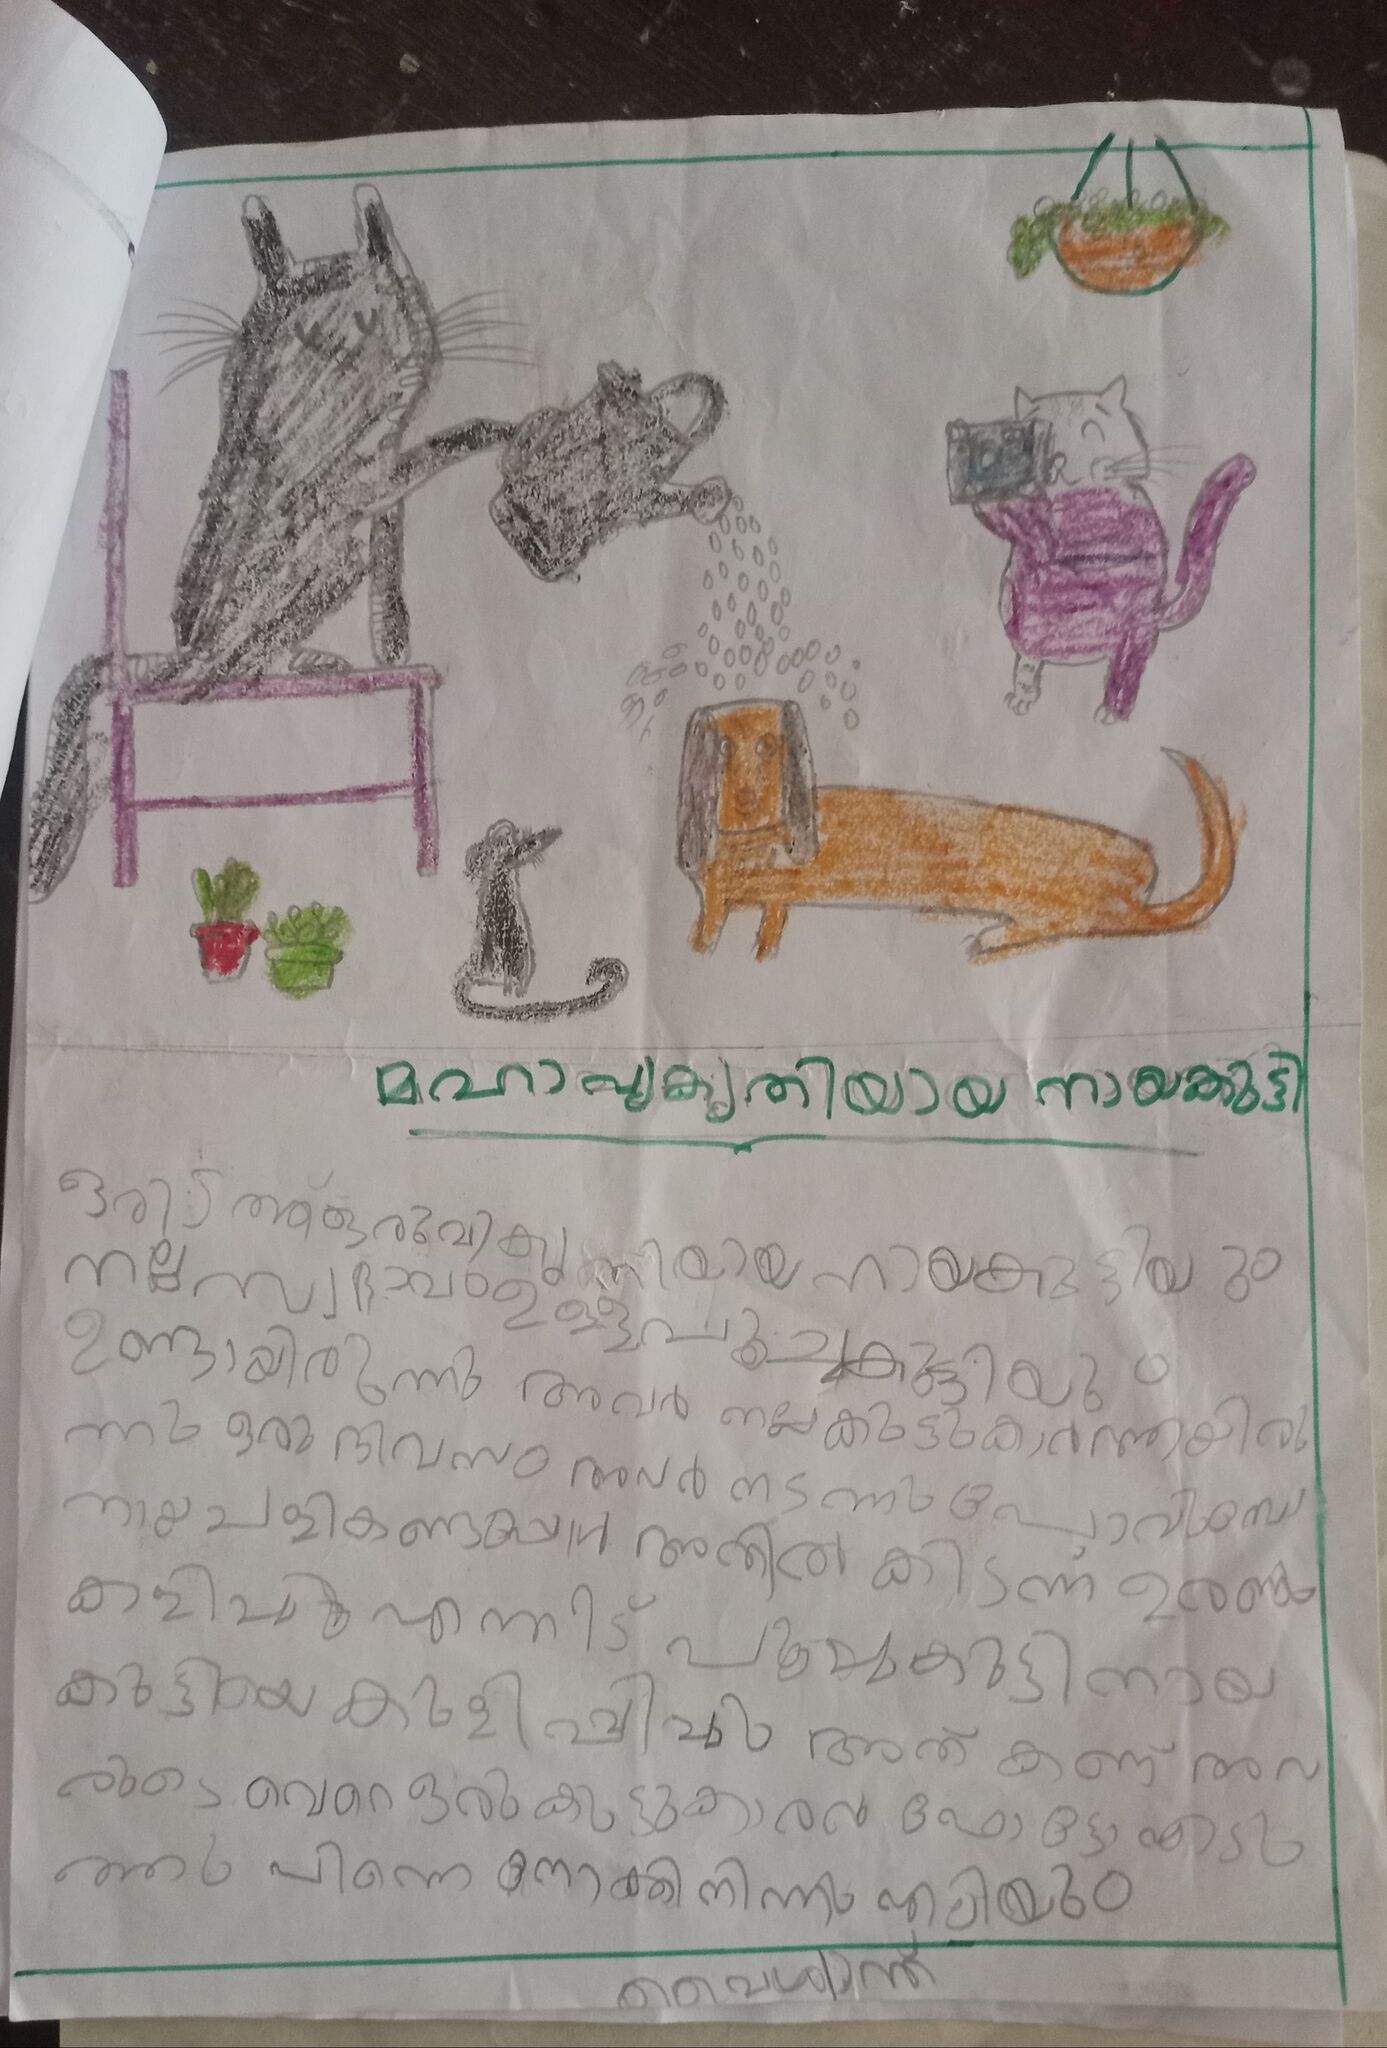 മഹാ വികൃതിയായ നായക്കുട്ടി
ഒരിടത്ത് ഒരു വികൃതിയായ നായകുട്ടിയും
നല്ല സ്വഭാവം ഉള്ള പൂച്ചകുട്ടിയും
ഉണ്ടായിരുന്നു അവർ നല്ല കുട്ടുകാരന്നായിരു
ന്നു ഒരു ദിവസം അവർ നടന്നു പോവുമ്പോ
നായ ചളി കണ്ടപ്പോൾ അതിൽ കിടന്ന് ഉരുണ്ടു
കളിച്ചു എന്നിട്ട് പൂച്ചകുട്ടി നായ
കുട്ടിയെ കുളിപ്പിച്ചു അത് കണ്ട് അവ
രുടെ വെറെ ഒരു കുട്ടുകാരൻ ഫോട്ടോ എടു
ത്തു പിന്നെ നോക്കി നിന്നു എലിയും
വൈശാന്ത്